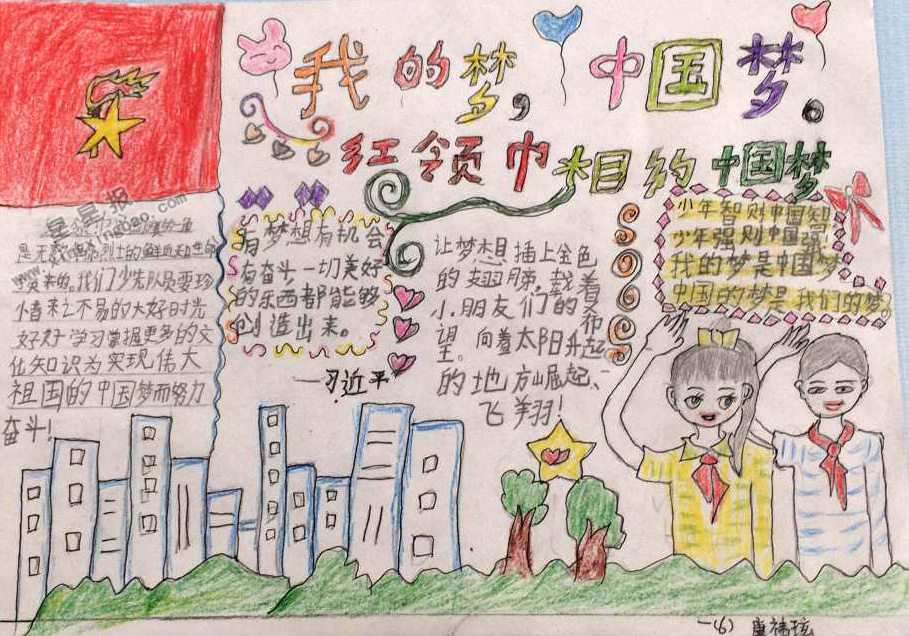 我的梦,中国梦。
红领巾相约中国梦
是无数革命烈士的鲜血和生命
换来的。我们少先队员要珍
惜来之不易的大好时光
好好学习掌握更多的文
化知识为实现伟大
祖国的中国梦而努力
奋斗!
有梦想有机会
有奋斗一切美好
的东西都能够
创造出来。
—习近平
让梦想插上金色
的翅膀,载着
小朋友们的希
望。向着太阳升起
的地方崛起、
飞翔!
少年智则中国智
少年强则中国强
我的梦是中国梦
中国的梦是我们的梦。
一(6)
星星报